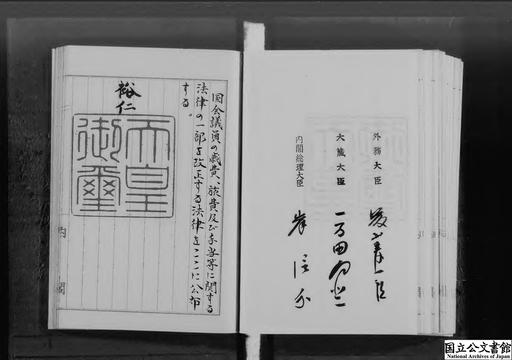 国会議員の歳費、旅費及び手当等に関する
法律の一部を改正する法律をここに公布
する。
裕仁
天皇
御璽
内閣
外務大臣
大蔵大臣
一万田尚登
内閣総理大臣
岸信介
国立公文書館
National Archives of Japan